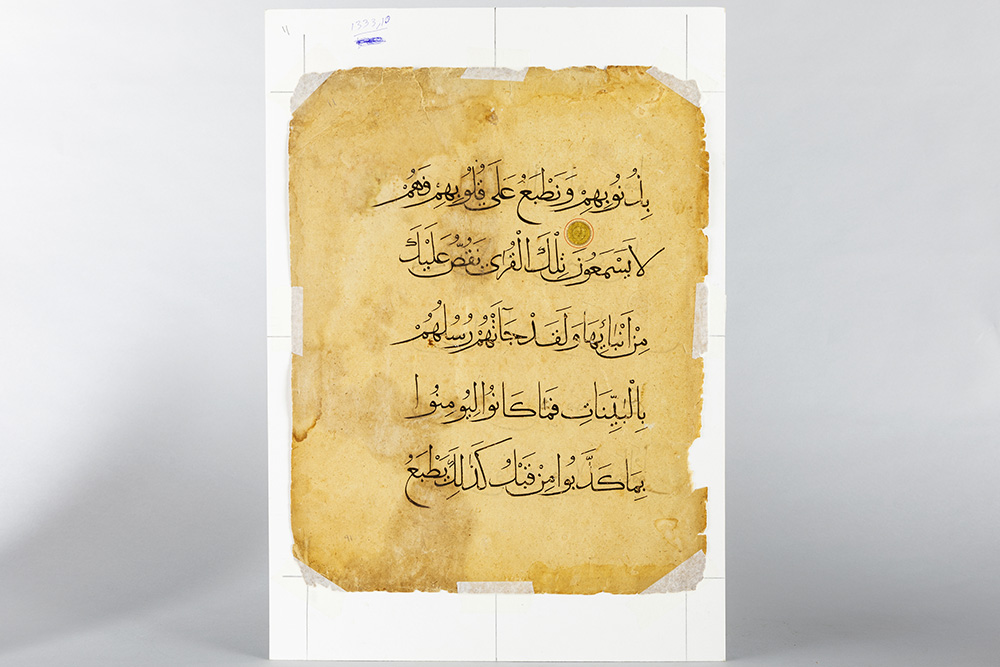 1333,12
بِذُنُوبِهِمْ وَنَطْبَعُ عَلَى قُلُوبِهِمْ فَهُمْ
لَا يَسْمَعُونَ تِلْكَ الْقُرَى نَقُصُّ عَلَيْكَ
مِنْ أَنْبَائِهَا وَلَقَدْ جَآتْهُمْ رُسُلُهُمْ
بِالْبَيِّنَاتِ فَمَا كَانُوا لِيُومِنُوا
بِمَا كَذَّبُوا مِنْ قَبْلُ كَذَلِكَ يَطْبَعُ